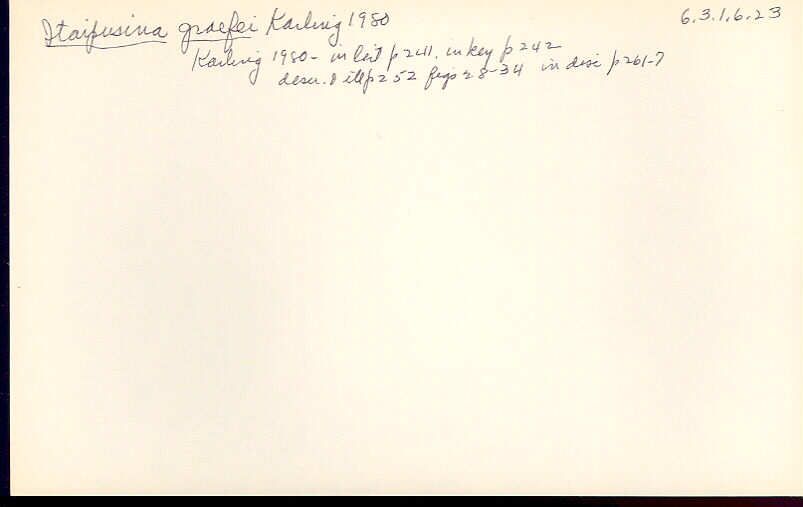 Itaipusina graefei Karling 1980 6.3.1.6.23
Karling 1980 - in list p 241, in key p 242
descr. & ill p 252 figs 28-34 in disc p 261-7